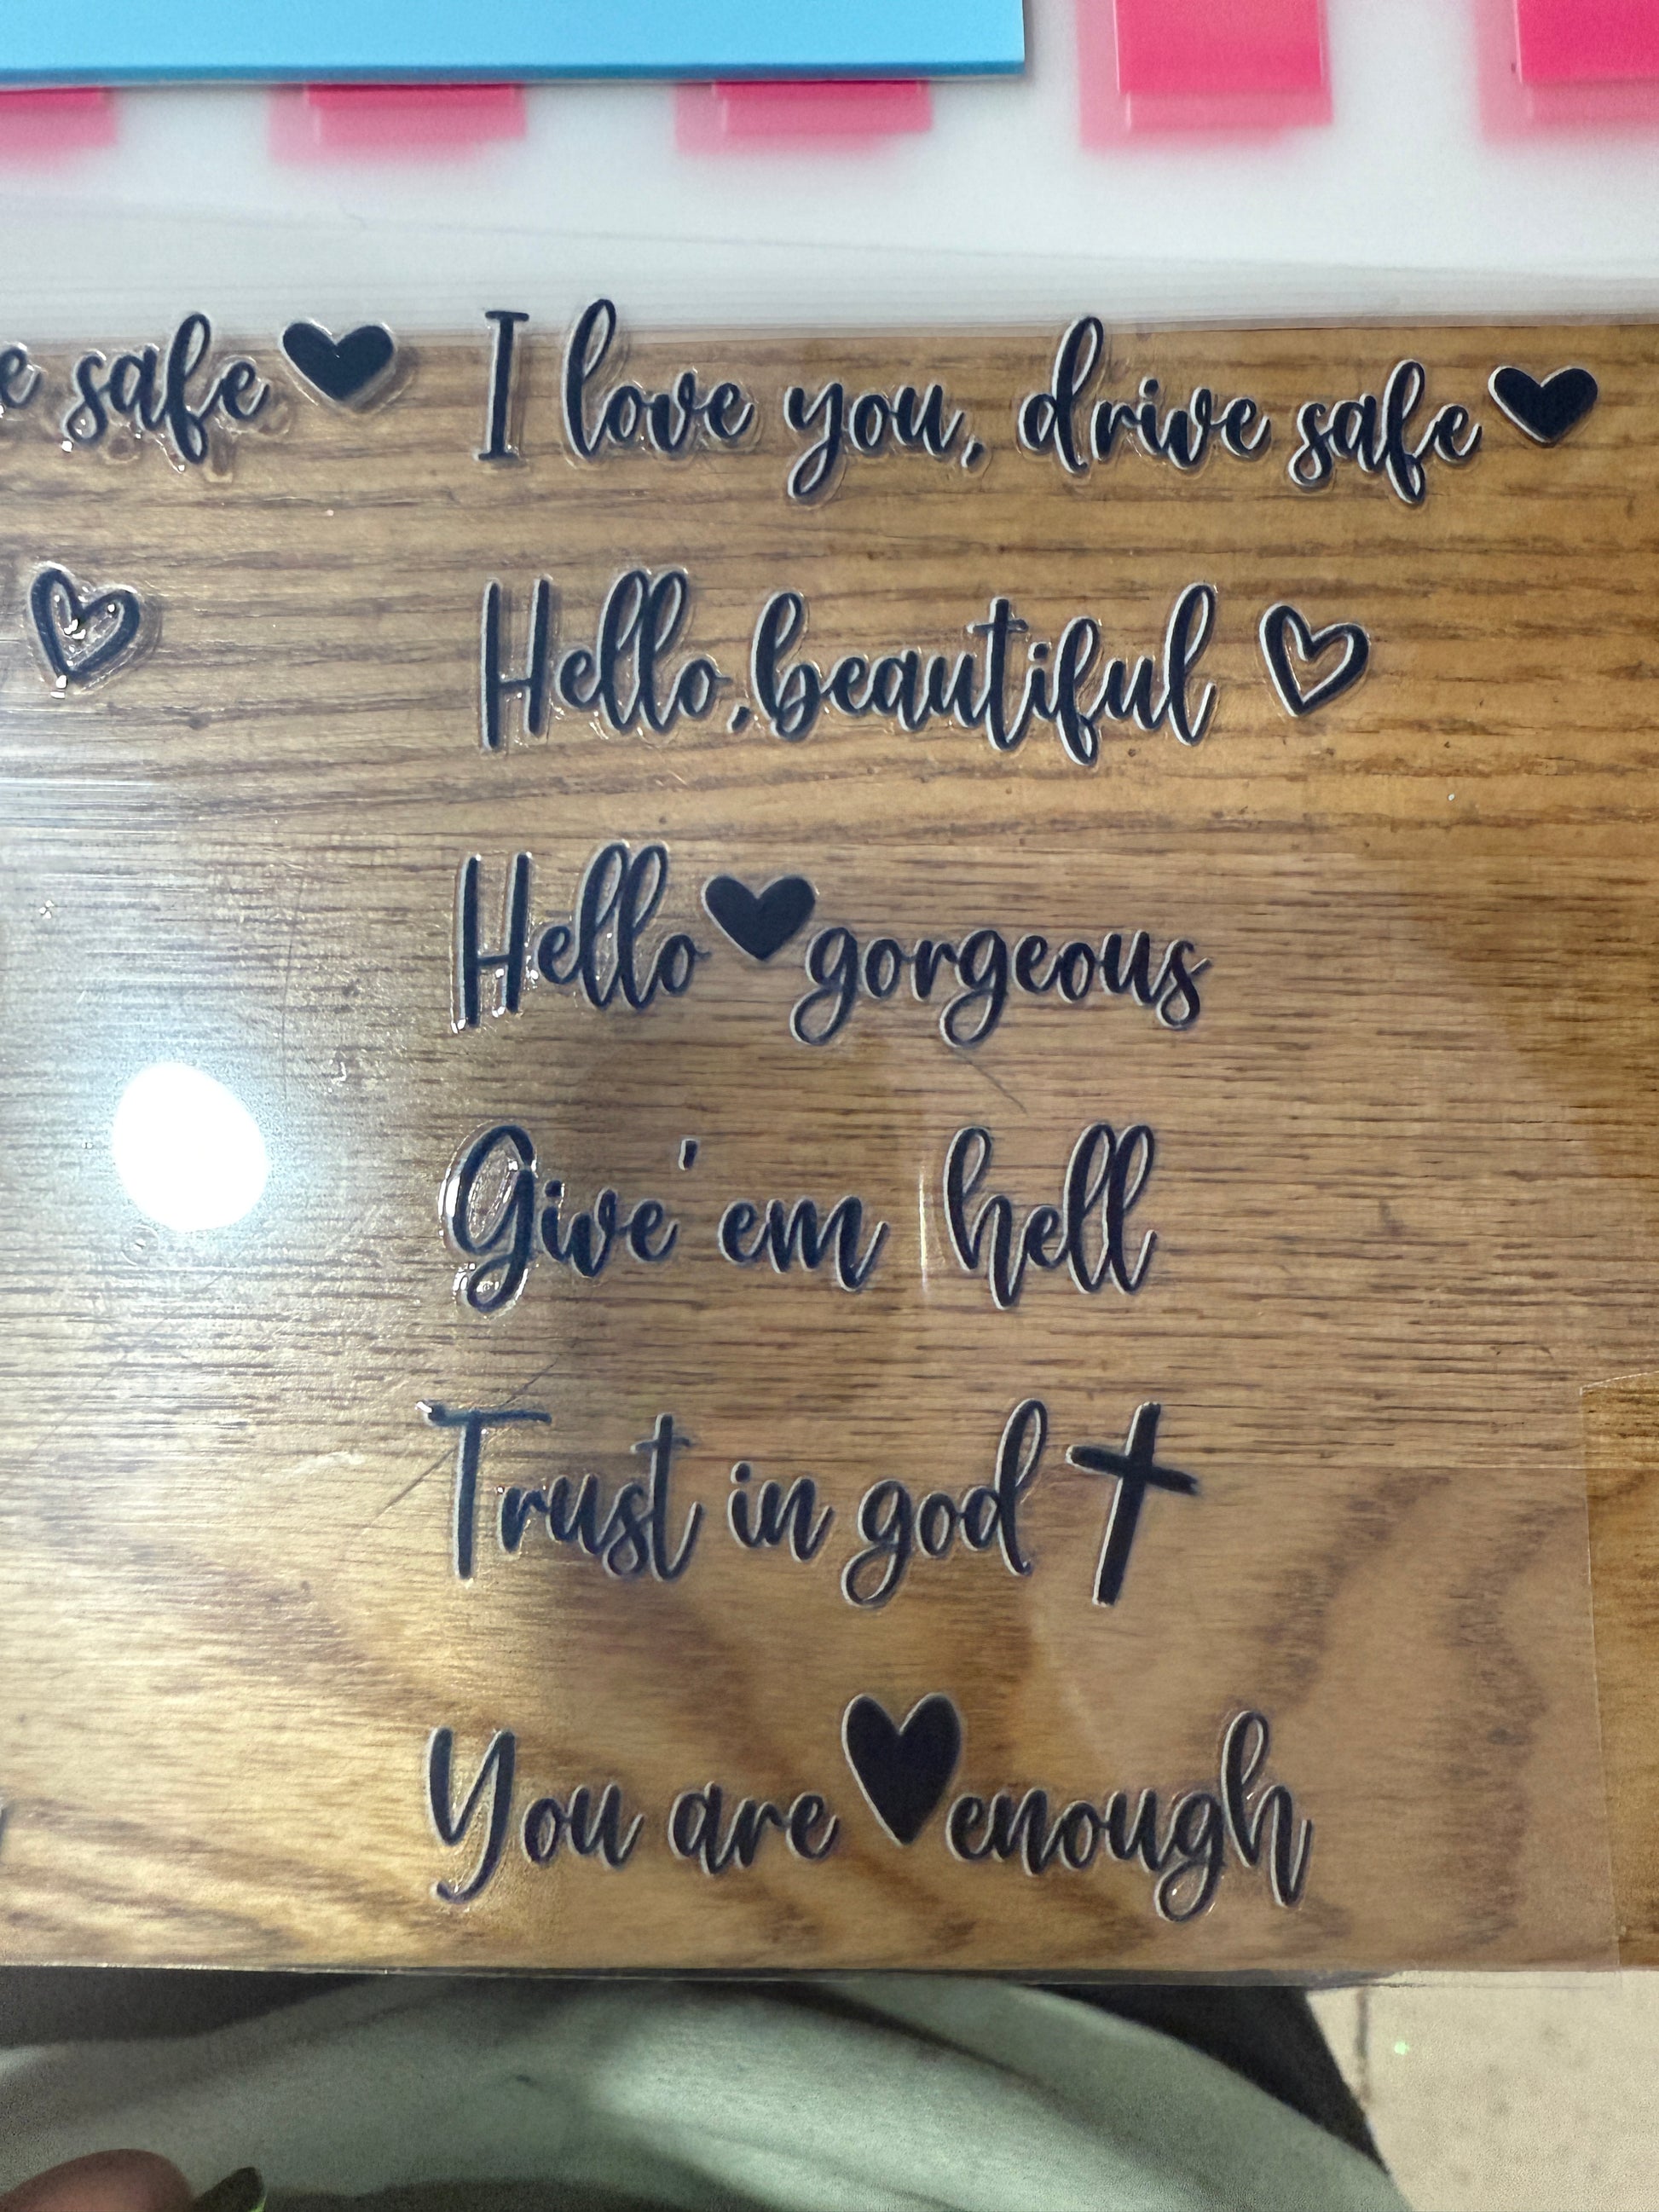 safe ♥ I love you, drive safe ♥
♡ Hello, beautiful ♡
Hello ♥ gorgeous
Give 'em hell
Trust in god ✝
You are ♥ enough